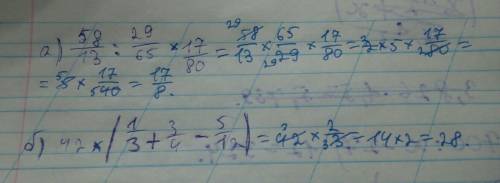 а) 58/13 : 29/65 × 17/80 = 58/13 × 65/29 × 17/80 = 2 × 5 × 17/80 =
= × 17/ = 17/8.
б) 42 × (1/3 + 3/4 - 5/12) = 42 × 2/3 = 14 × 2 = 28.